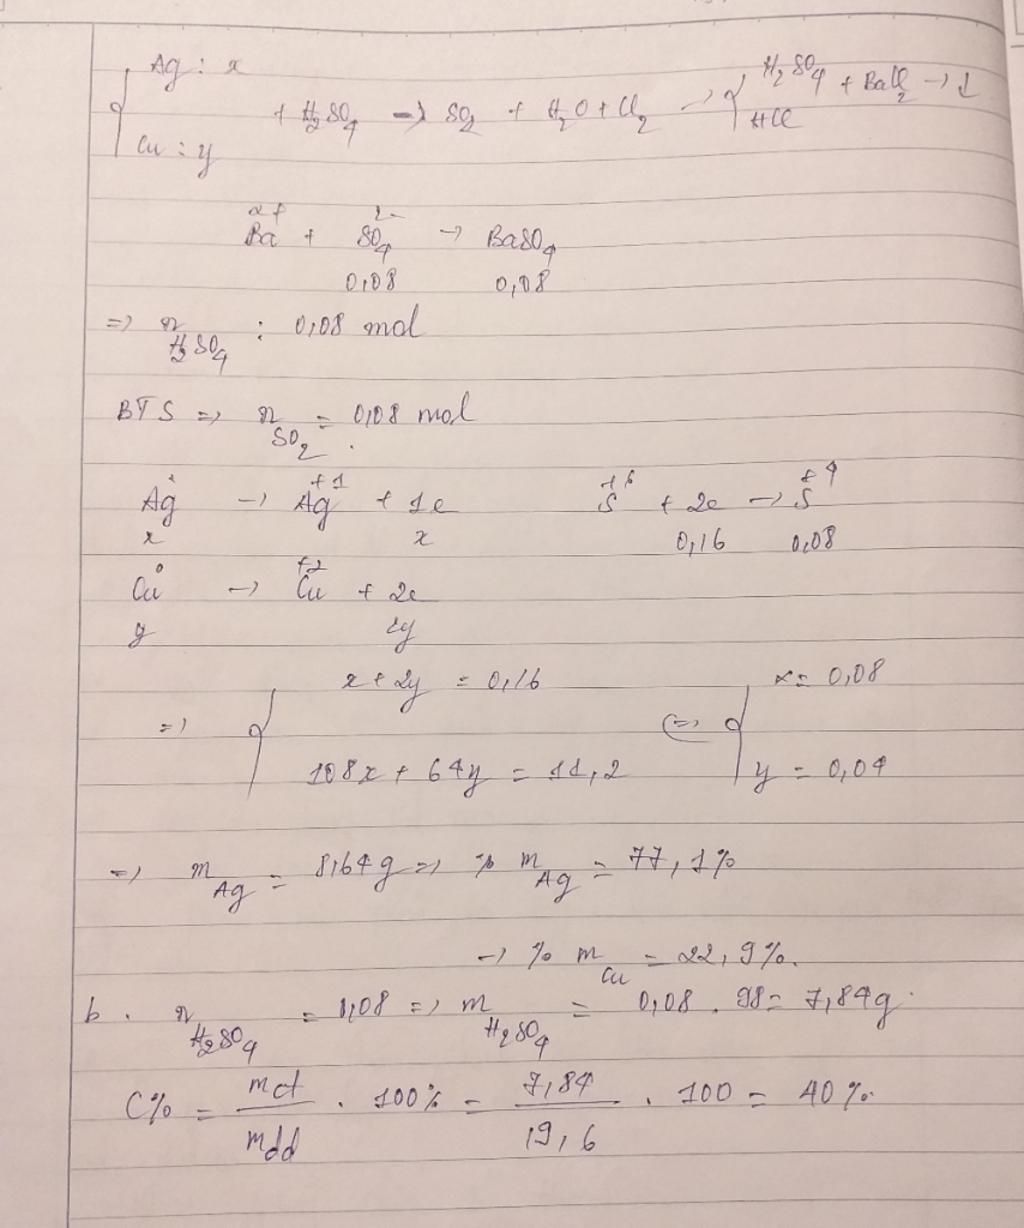 Ag : x
+ H₂SO₄ → SO₂ + H₂O + Cl₂ → { H₂SO₄ + BaCl₂ → ↓
HCl
Cu : y
Ba²⁺ + SO₄²⁻ → BaSO₄
0,08 0,08
=> n H₂SO₄ : 0,08 mol
BTS => n SO₂ = 0,08 mol
Ag⁰ → Ag⁺¹ + 1e S⁺⁶ + 2e → S⁺⁴
x x 0,16 0,08
Cu⁰ → Cu⁺² + 2e
y 2y
=> { x + 2y = 0,16 <=> { x = 0,08
108x + 64y = 11,2 y = 0,04
=> m Ag = 8,64g => % m Ag = 77,1%
→ % m Cu = 22,9%.
b. n H₂SO₄ = 0,08 => m H₂SO₄ = 0,08 . 98 = 7,84g.
C% = mct / mdd . 100% = 7,84 / 19,6 . 100 = 40%.